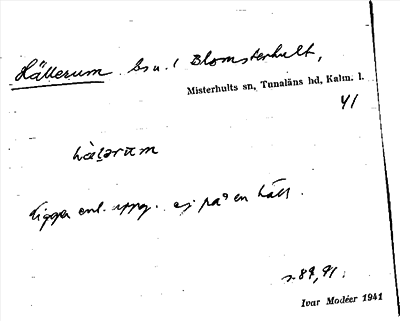 Hällerum bsu. / Blomsterhult,
Misterhults sn, Tunaläns hd, Kalm. l.
41
hàḷərum
ligger enl. uppg. ej på en häll.
s. 89, 91.
Ivar Modéer 1941